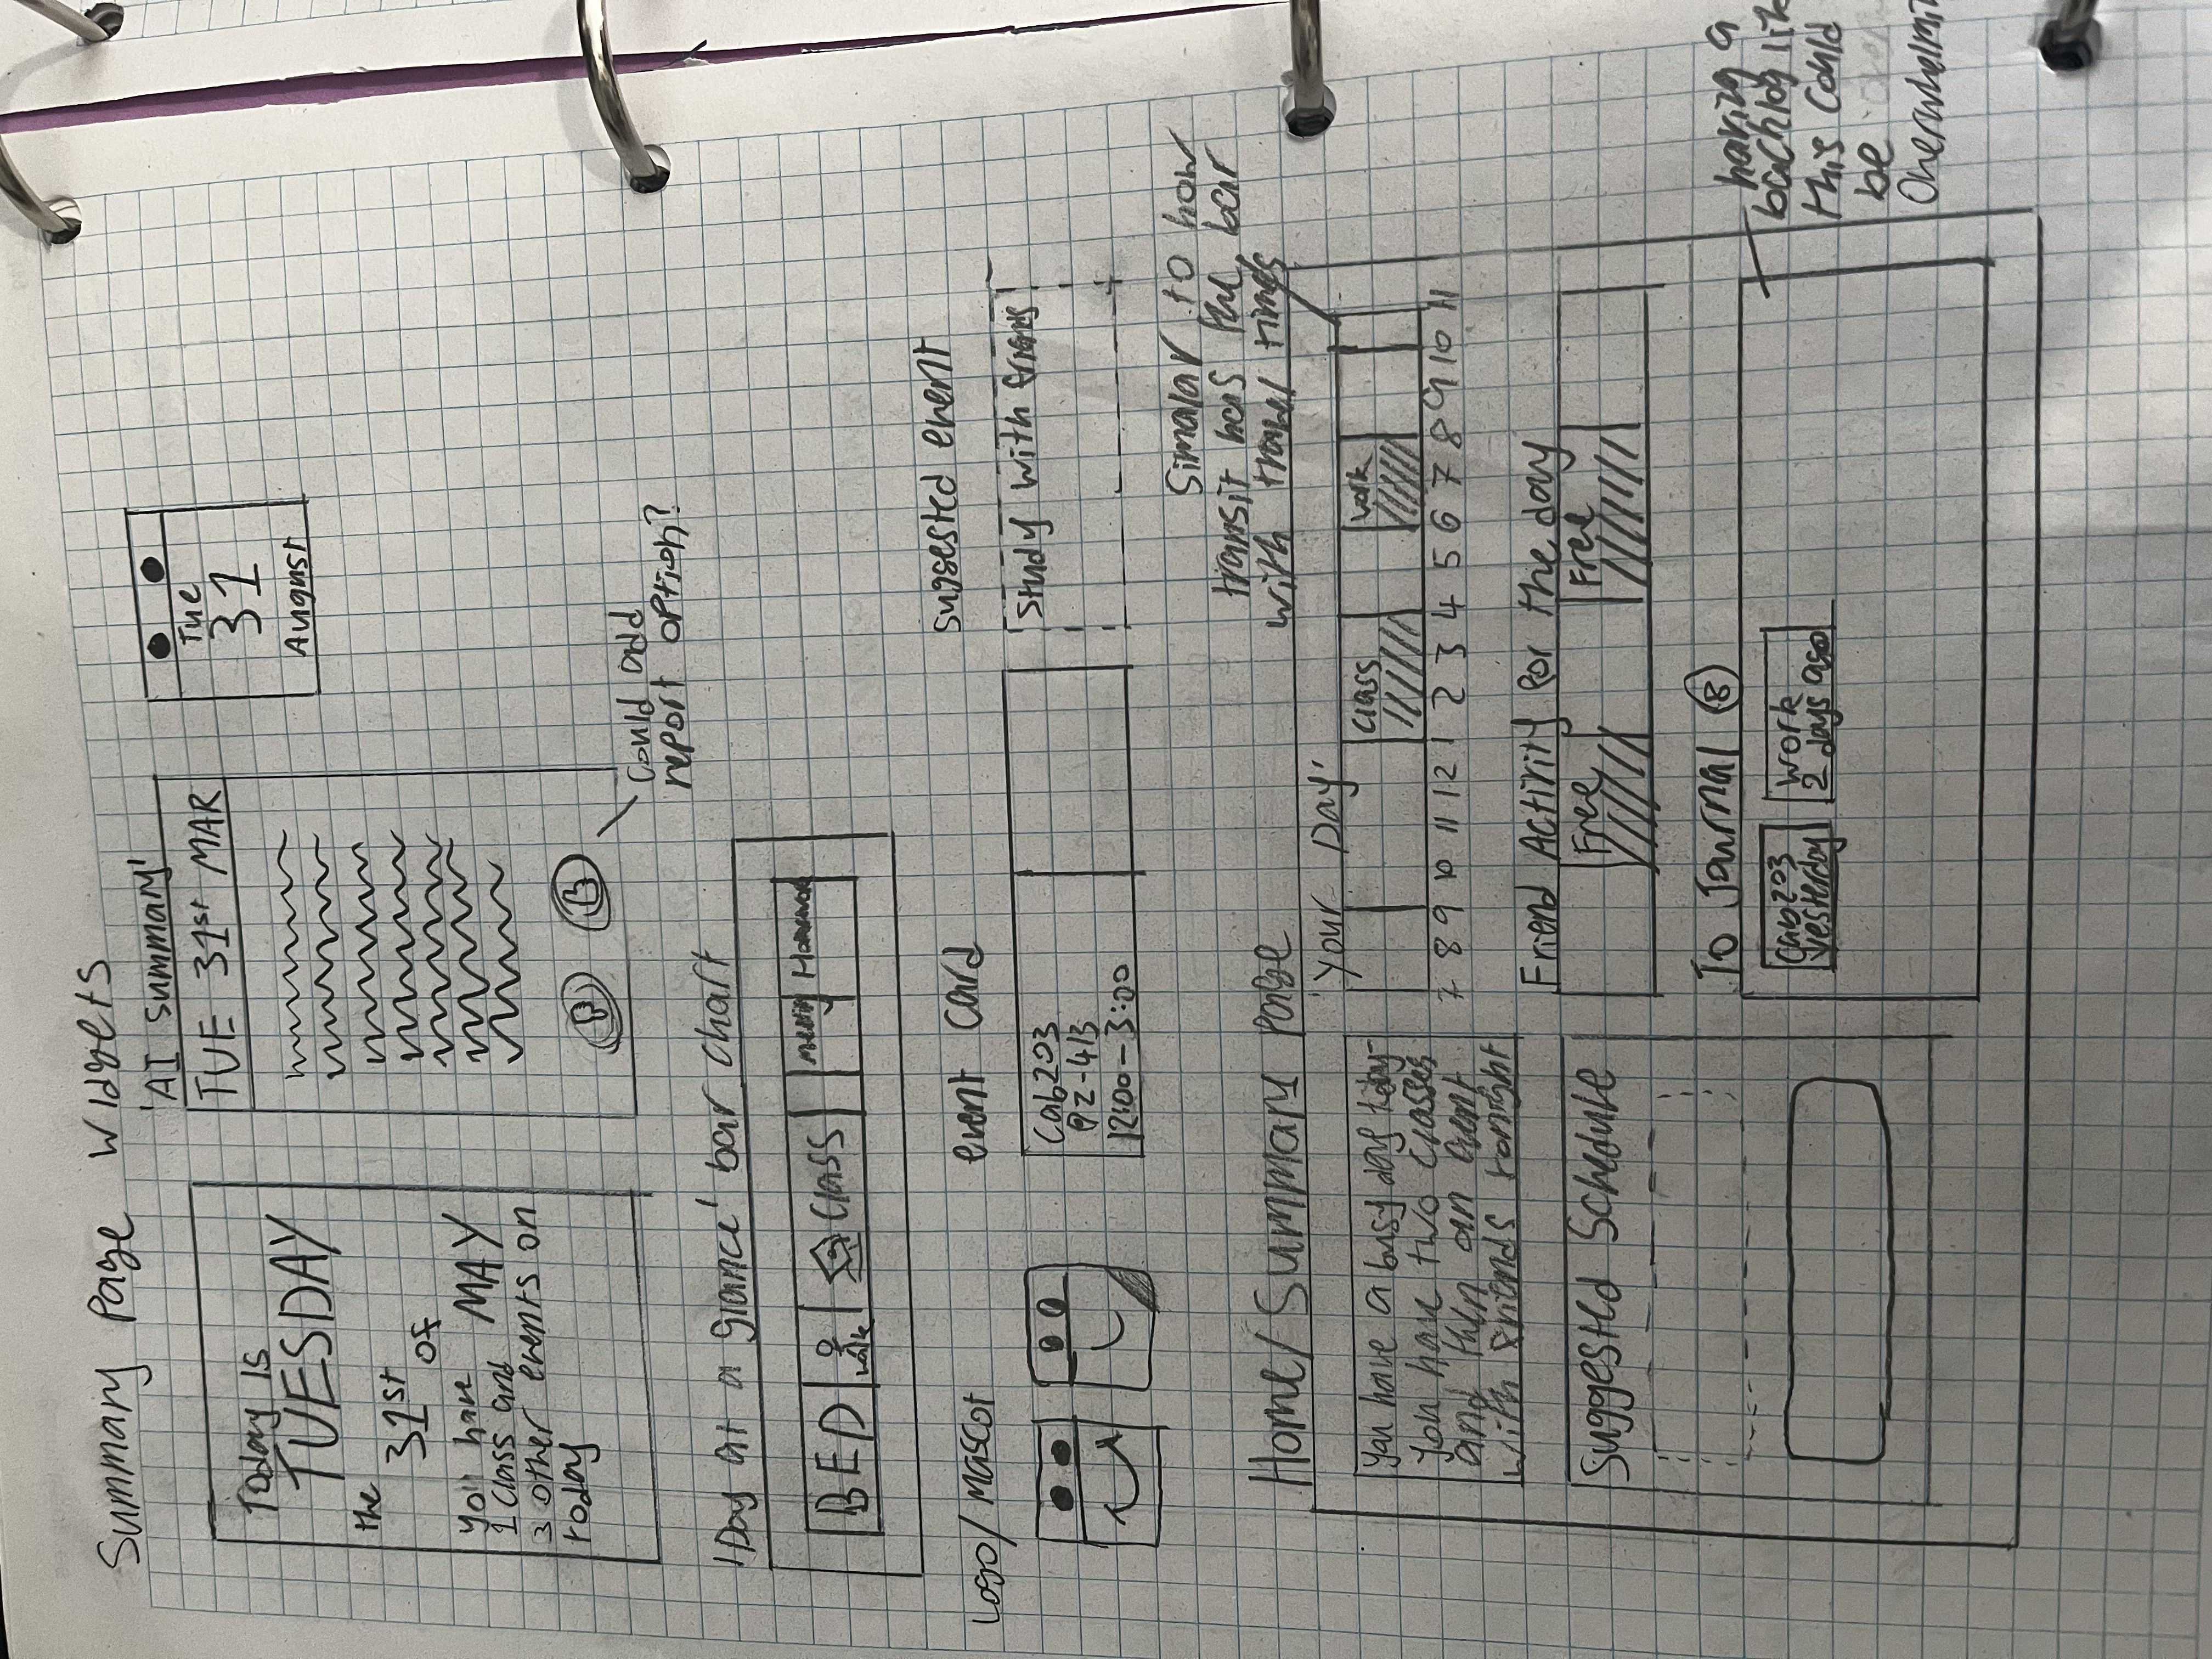 Summary Page Widgets
Today is
TUESDAY
the
31st of
MAY
you have
1 class and
3 other events on
today
'AI summary'
TUE 31st MAR
Could add
report option?
Tue
31
August
'Day at a glance' bar chart
BED
walk
Class
meeting
Homework
Logo/Mascot
event card
Cab203
Z-413
12:00-3:00
suggested event
Study with friends
Home/Summary Page
Simalar to how
transit has the bar
with travel times
you have a busy day today-
you have two classes
and then an event
with friends tonight
'Your Day'
class
work
7 8 9 10 11 12 1 2 3 4 5 6 7 8 9 10 11
Friend Activity for the day
Free
Free
Suggested Schedule
To Journal 8
Cab203
Yesterday
Work
2 days ago
having a
backlog
this could
be